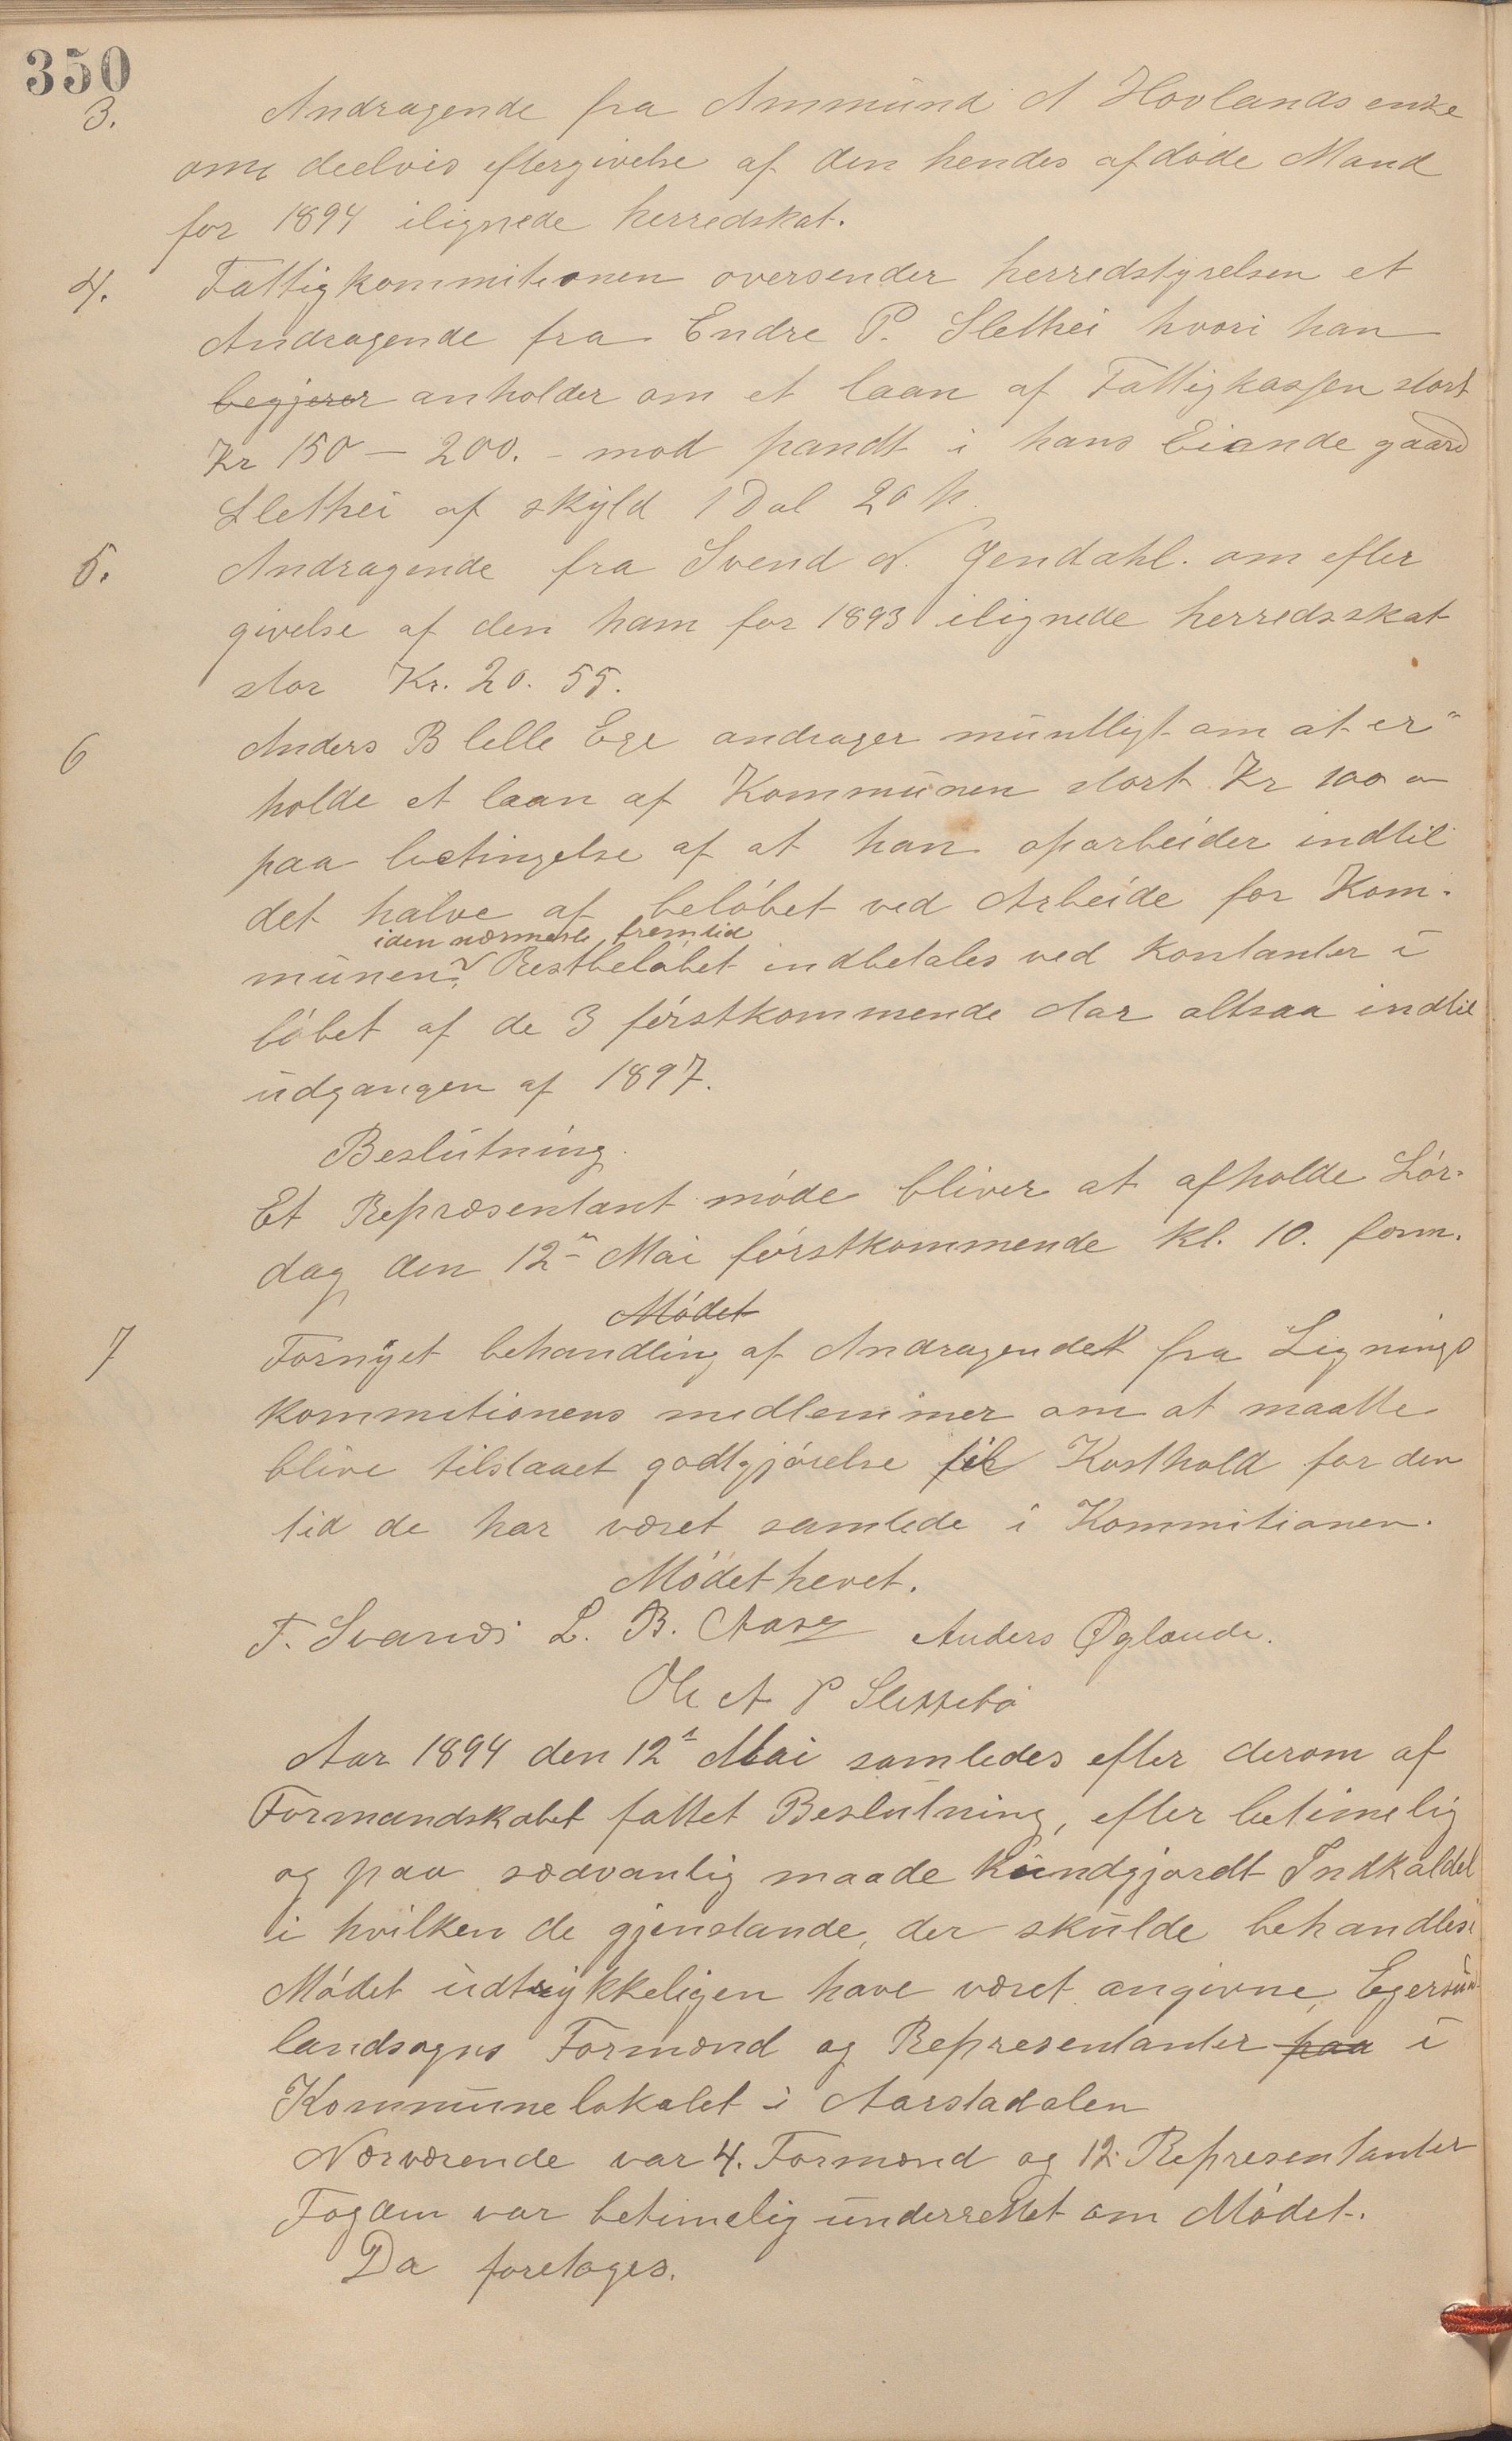 350
3. Andragende fra Ammund A Hovlands enke
om deelvis eftergivelse af den hendes afdøde Mand
for 1894 ilignede herredskat.
4. Fattigkommitionen oversender herredstyrelsen et
Andragende fra Endre P. Slethei hvori han
begjerer anholder om et laan af Fattigkassen stort
Kr 150 – 200. – mod pandt i hans Eiende gaard
Slethei af skyld 1 Dal 20 h
5. Andragende fra Svend N. Gendahl. om efter
givelse af den ham for 1893 ilignede herredsskat
stor Kr. 20. 55.
6 Anders B lelle Ege andrager muntligt om at er"
holde et laan af Kommunen stort Kr 100 0
paa betingelse af at han oparbeider indtil
det halve af beløbet ved Arbeide for Kom-
iden nærmeste fremtid
munen. Restbeløbet indbetales ved Kontanter i
løbet af de 3 førstkommende Aar altsaa indtil
udgangen af 1897.
Beslutning.
Et Repræsentant møde bliver at afholde Lør-
dag den 12n Mai førstkommende kl. 10. form.
Mødet
7 Fornyet behandling af Andragendet fra Lignings
kommitionens medlemmer om at maatte
blive tilstaaet godtgjørelse til Kosthold for den
tid de har været samlede i Kommitionen.
Mødet hevet.
F. Svanæs L. B. Aase Anders Øglænde.
Ole A P Slettebø
Aar 1894 den 12t Mai samledes efter derom af
Formandskabet fattet Beslutning, efter betimelig
og paa sædvanlig maade kundgjordt Indkaldel
i hvilken de gjenstande, der skulde behandles i
Mødet udtrykkeligen have været angivne, Egersun
landsogns Formænd og Representanter paa i
Kommunelokalet i Aarstadalen
Nærværende var 4. Formænd og 12. Representanter
Fogden var betimelig underrettet om Mødet.
Da foretoges.